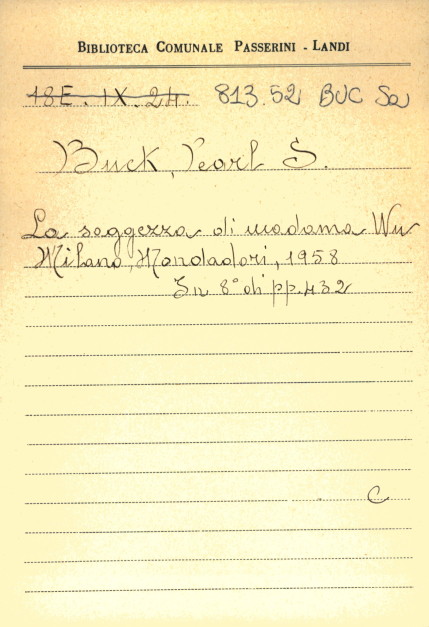 BIBLIOTECA COMUNALE PASSERINI - LANDI
18E. IX. 24. 813.52 BUC Sa
Buck, Pearl S.
La seggezza di madama Wu
Milano, Mondadori, 1958
In 8° di pp. 432
C